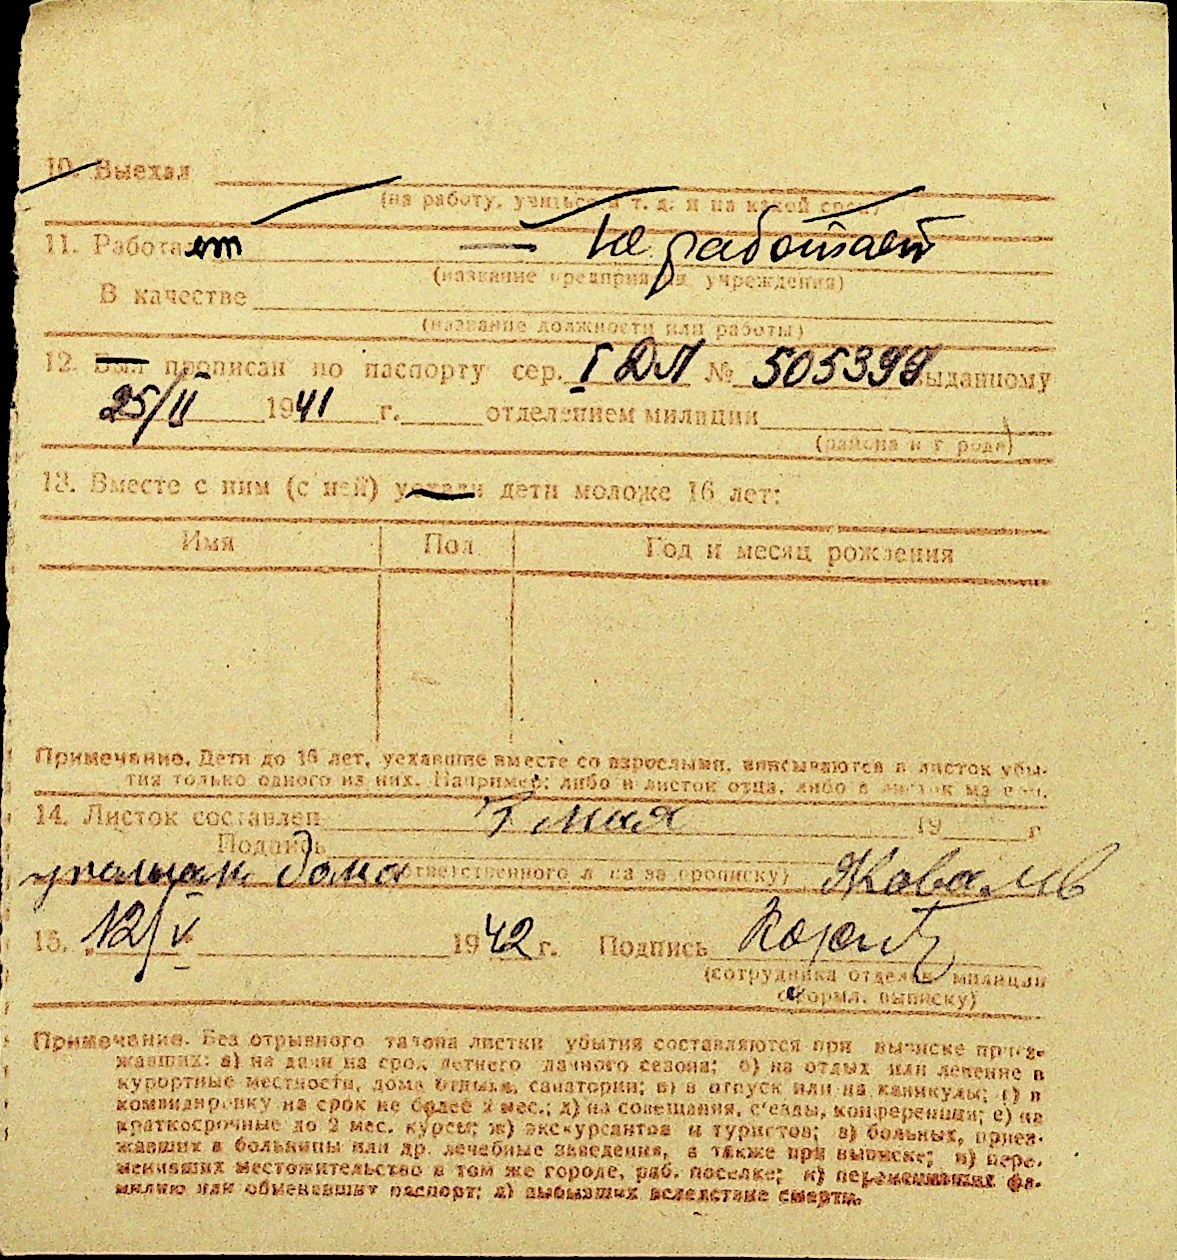 10. Выехал
(на работу, учиться и т. д. и на какой срок)
11. Работает — Не работает
(название предприятия учреждения)
В качестве
(название должности или работы)
12. Был прописан по паспорту сер. I ДЛ № 505399 выданному
25/II 1941 г. отделением милиции
(района и города)
13. Вместе с ним (с ней) уехали дети моложе 16 лет:
Имя Пол Год и месяц рождения
Примечание. Дети до 16 лет, уехавшие вместе со взрослыми, вписываются в листок убы-
тия только одного из них. Например: либо в листок отца, либо в листок матери.
14. Листок составлен 7 мая 19 г
Подпись
дома (ответственного лица за прописку)
15. 12/V 1942 г. Подпись
(сотрудника отделен. милиции
оформл. выписку)
Примечание. Без отрывного талона листки убытия составляются при выписке приез-
жавших: а) на дачи на срок летнего дачного сезона; б) на отдых или лечение в
курортные местности, дома отдыха, санатории; в) в отпуск или на каникулы; г) в
командировку на срок не более 2 мес.; д) на совещания, с'езды, конференции; е) на
краткосрочные до 2 мес. курсы; ж) экскурсантов и туристов; з) больных, приез-
жавших в больницы или др. лечебные заведения, а также при выписке; и) пере-
менивших местожительство в том же городе, раб. поселке; к) переменивших фа-
милию или обменявших паспорт; л) выбывших вследствие смерти.